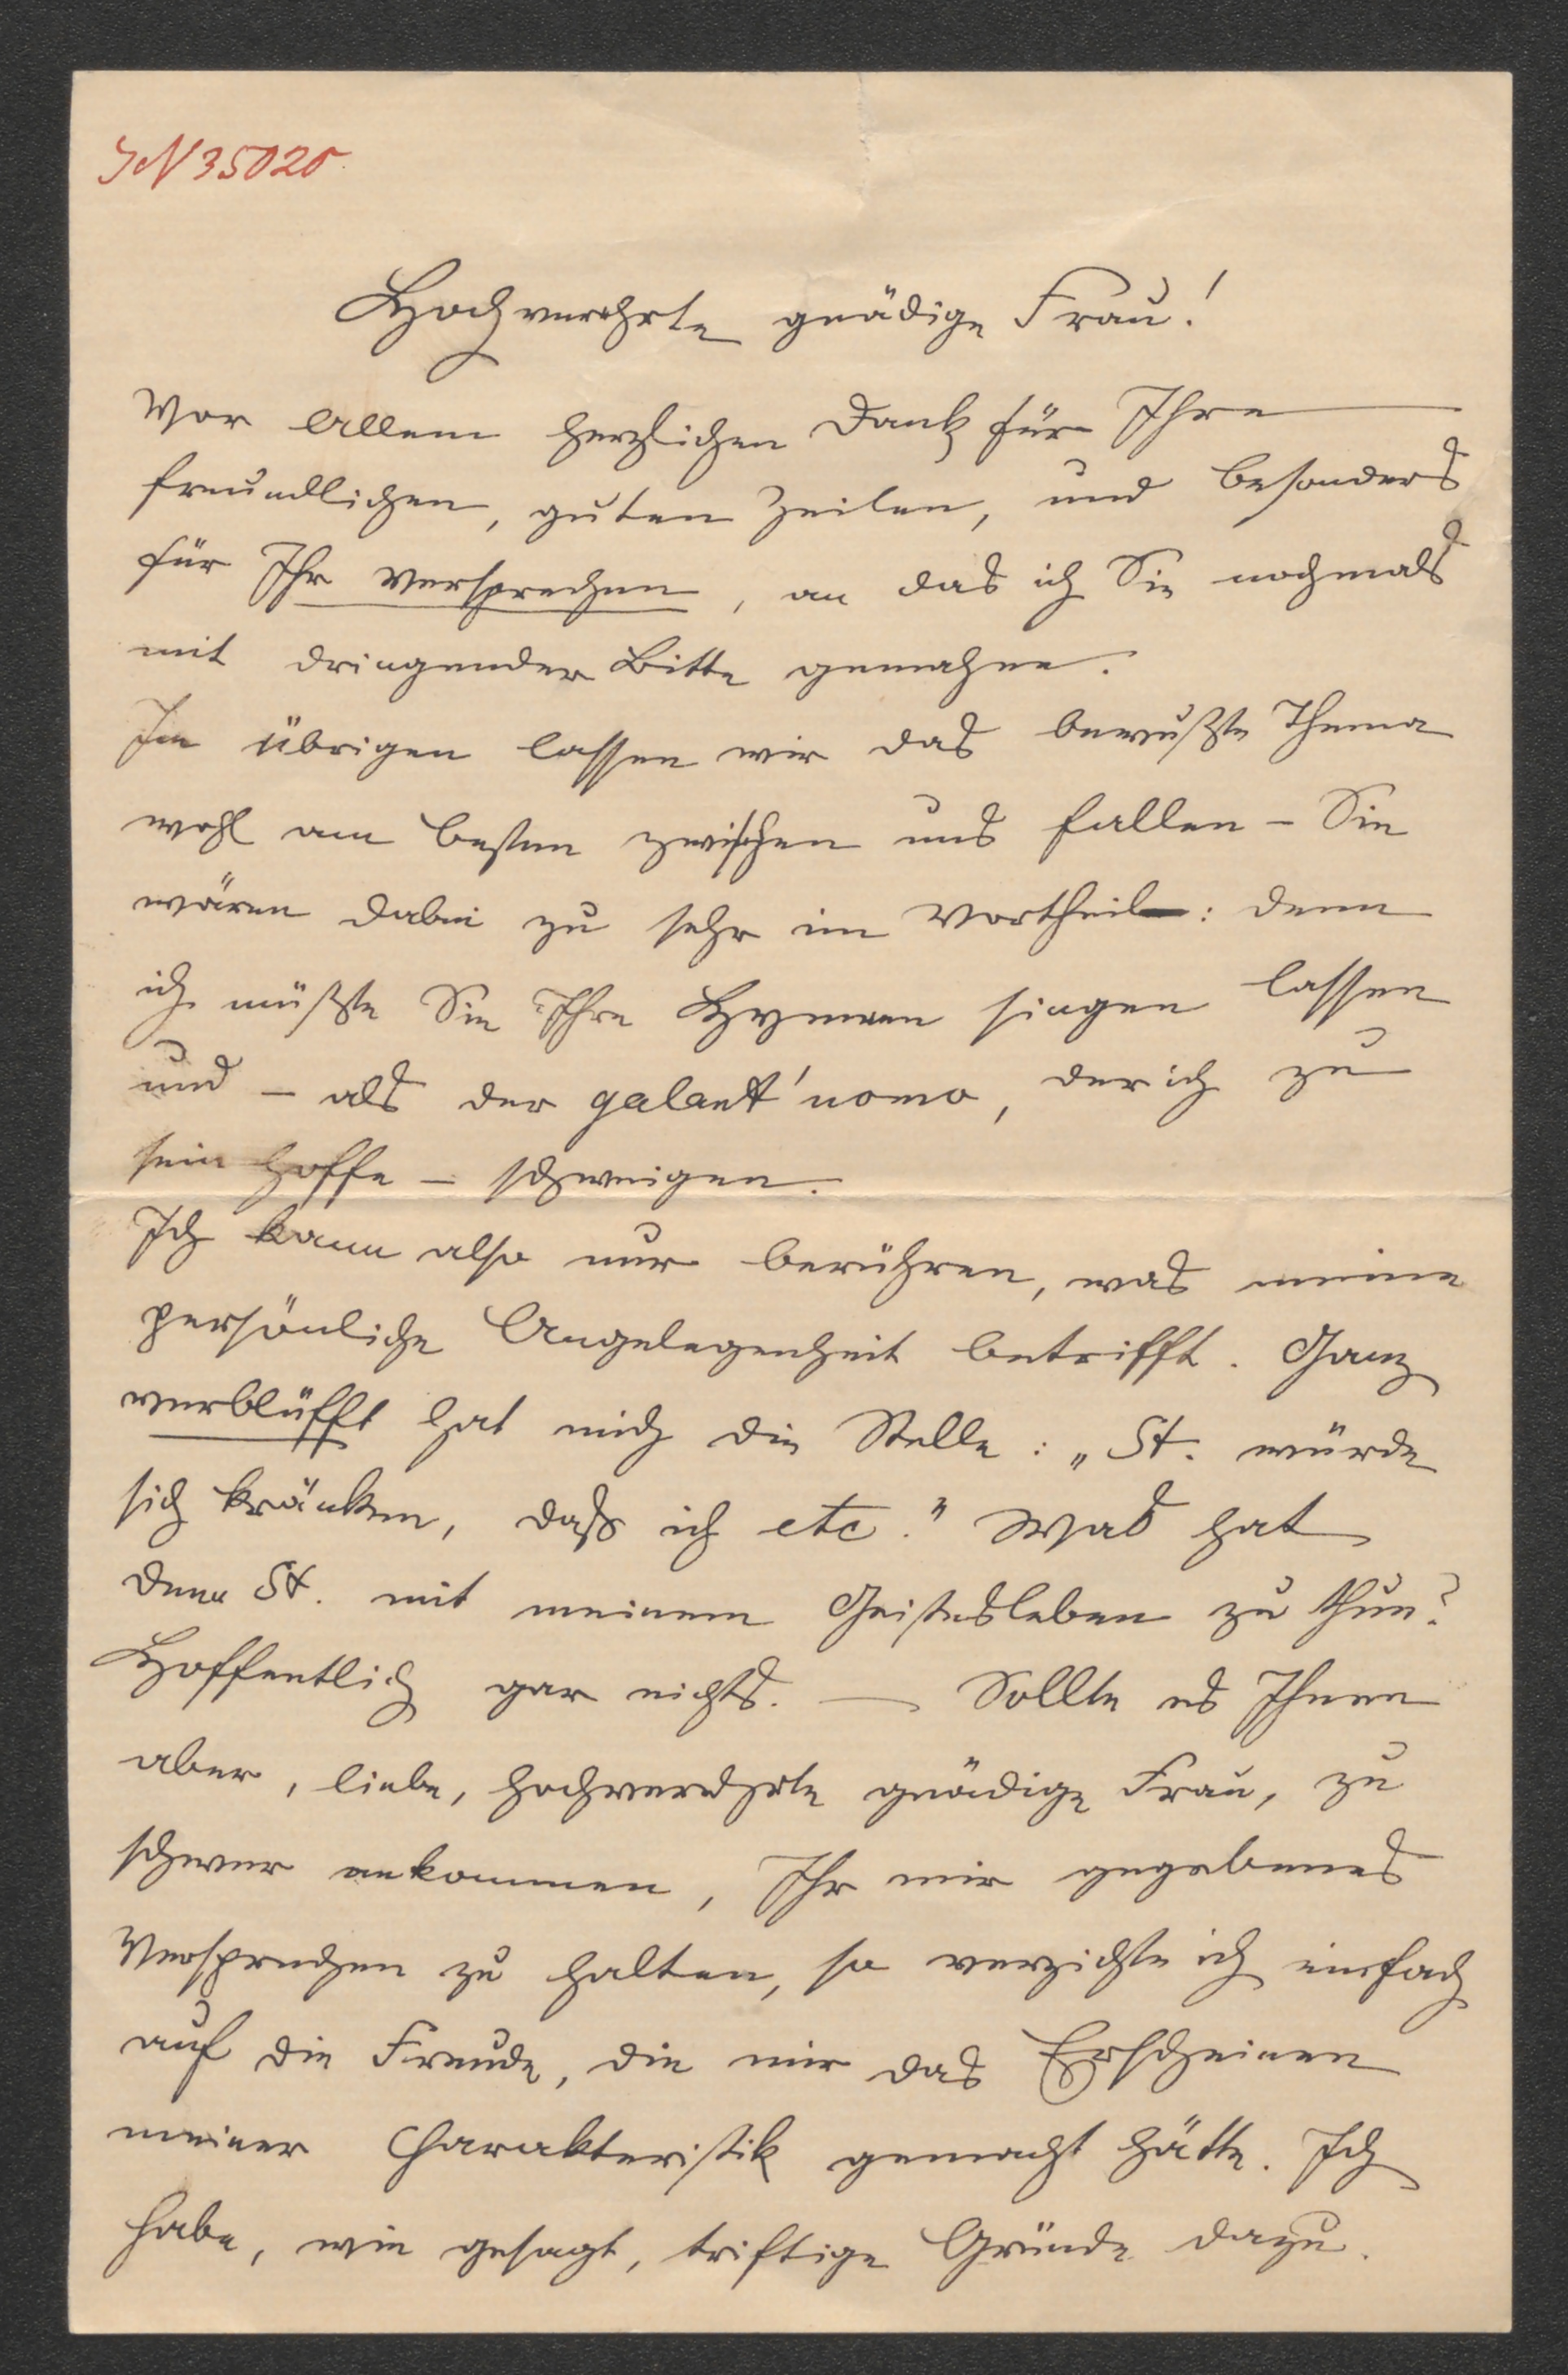 JN 35020
Hochverehrte gnädige Frau!
Vor Allem herzlichen Dank für Ihre
freundlichen, guten Zeilen, und besonders
für Ihr Versprechen, an das ich Sie nochmals
mit dringender Bitte gemahne.
Im übrigen lassen wir das bewußte Thema
wohl am besten zwischen uns fallen – Sie
wären dabei zu sehr im Vortheil: denn
ich müßte Sie Ihre Hymnen singen lassen
und – als der galant'uomo, der ich zu
sein hoffe – schweigen.
Ich kann also nur berühren, was meine
persönliche Angelegenheit betrifft. Ganz
verblüfft hat mich die Stelle: „St. würde
sich kränken, daß ich etc." Was hat
denn St. mit meinem Geistesleben zu thun?
Hoffentlich gar nichts. — Sollte es Ihnen
aber, liebe, hochverehrte gnädige Frau, zu
schwer ankommen, Ihr mir gegebenes
Versprechen zu halten, so verzichte ich einfach
auf die Freude, die mir das Erscheinen
meiner Charakteristik gemacht hätte. Ich
habe, wie gesagt, triftige Gründe dazu.